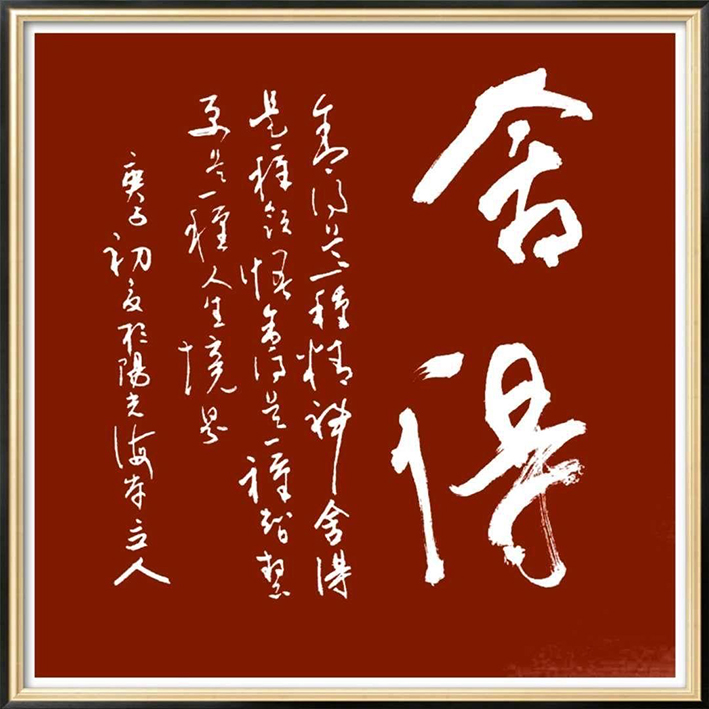 舍得
舍得是一種精神舍得
是一種領悟舍得是一種智慧
更是一種人生境界
庚子初夏於陽光海岸立人